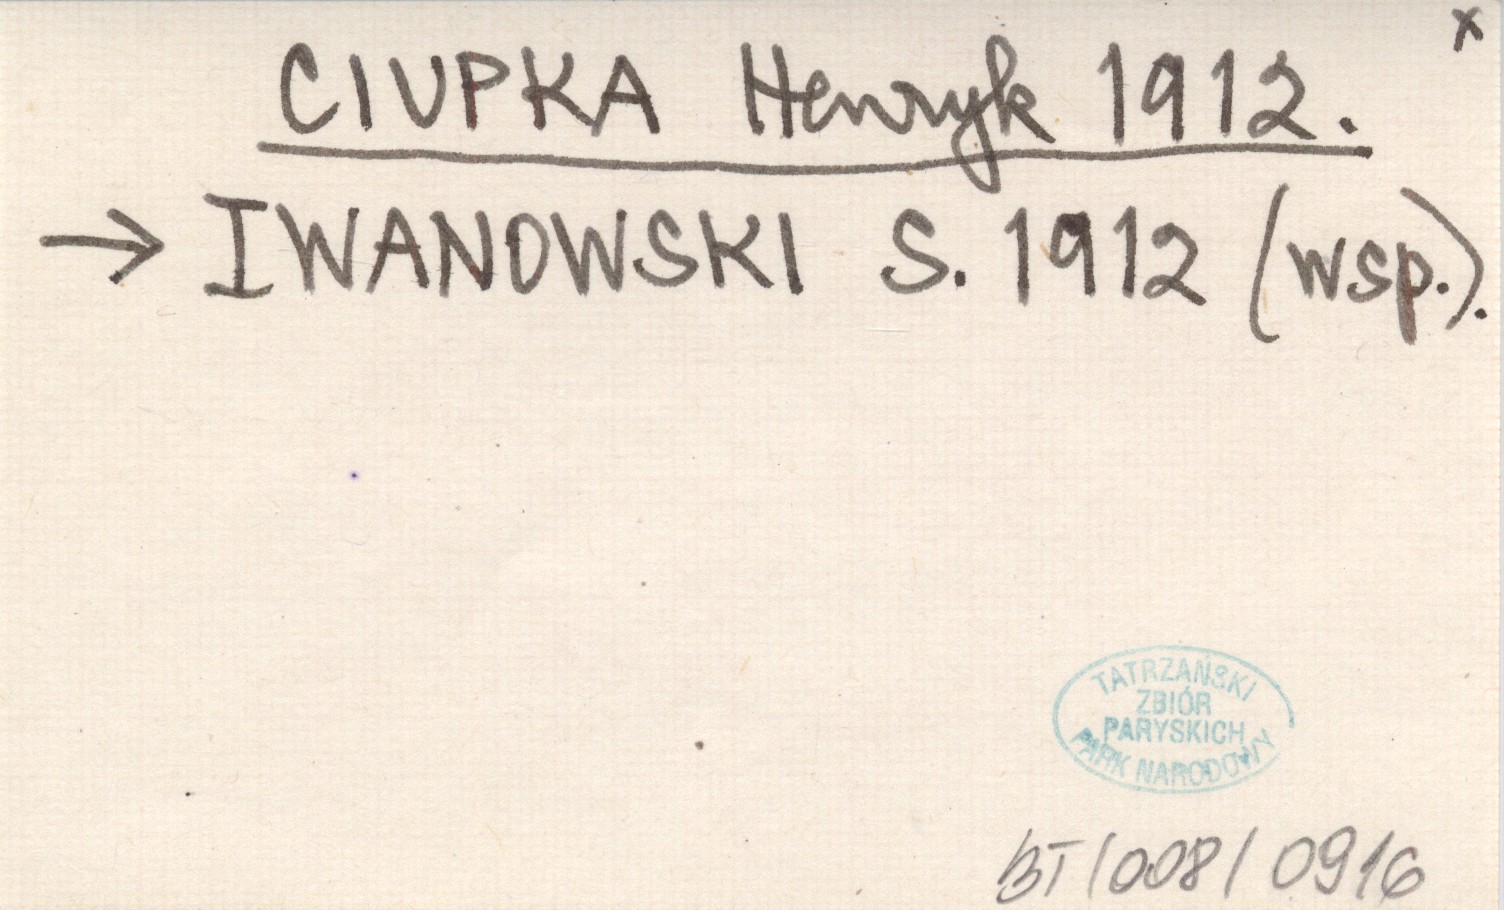 x
CIUPKA Henryk 1912.
→ IWANOWSKI S. 1912 (wsp.).
TATRZAŃSKI
ZBIÓR
PARYSKICH
PARK NARODOWY
BT/008/0916